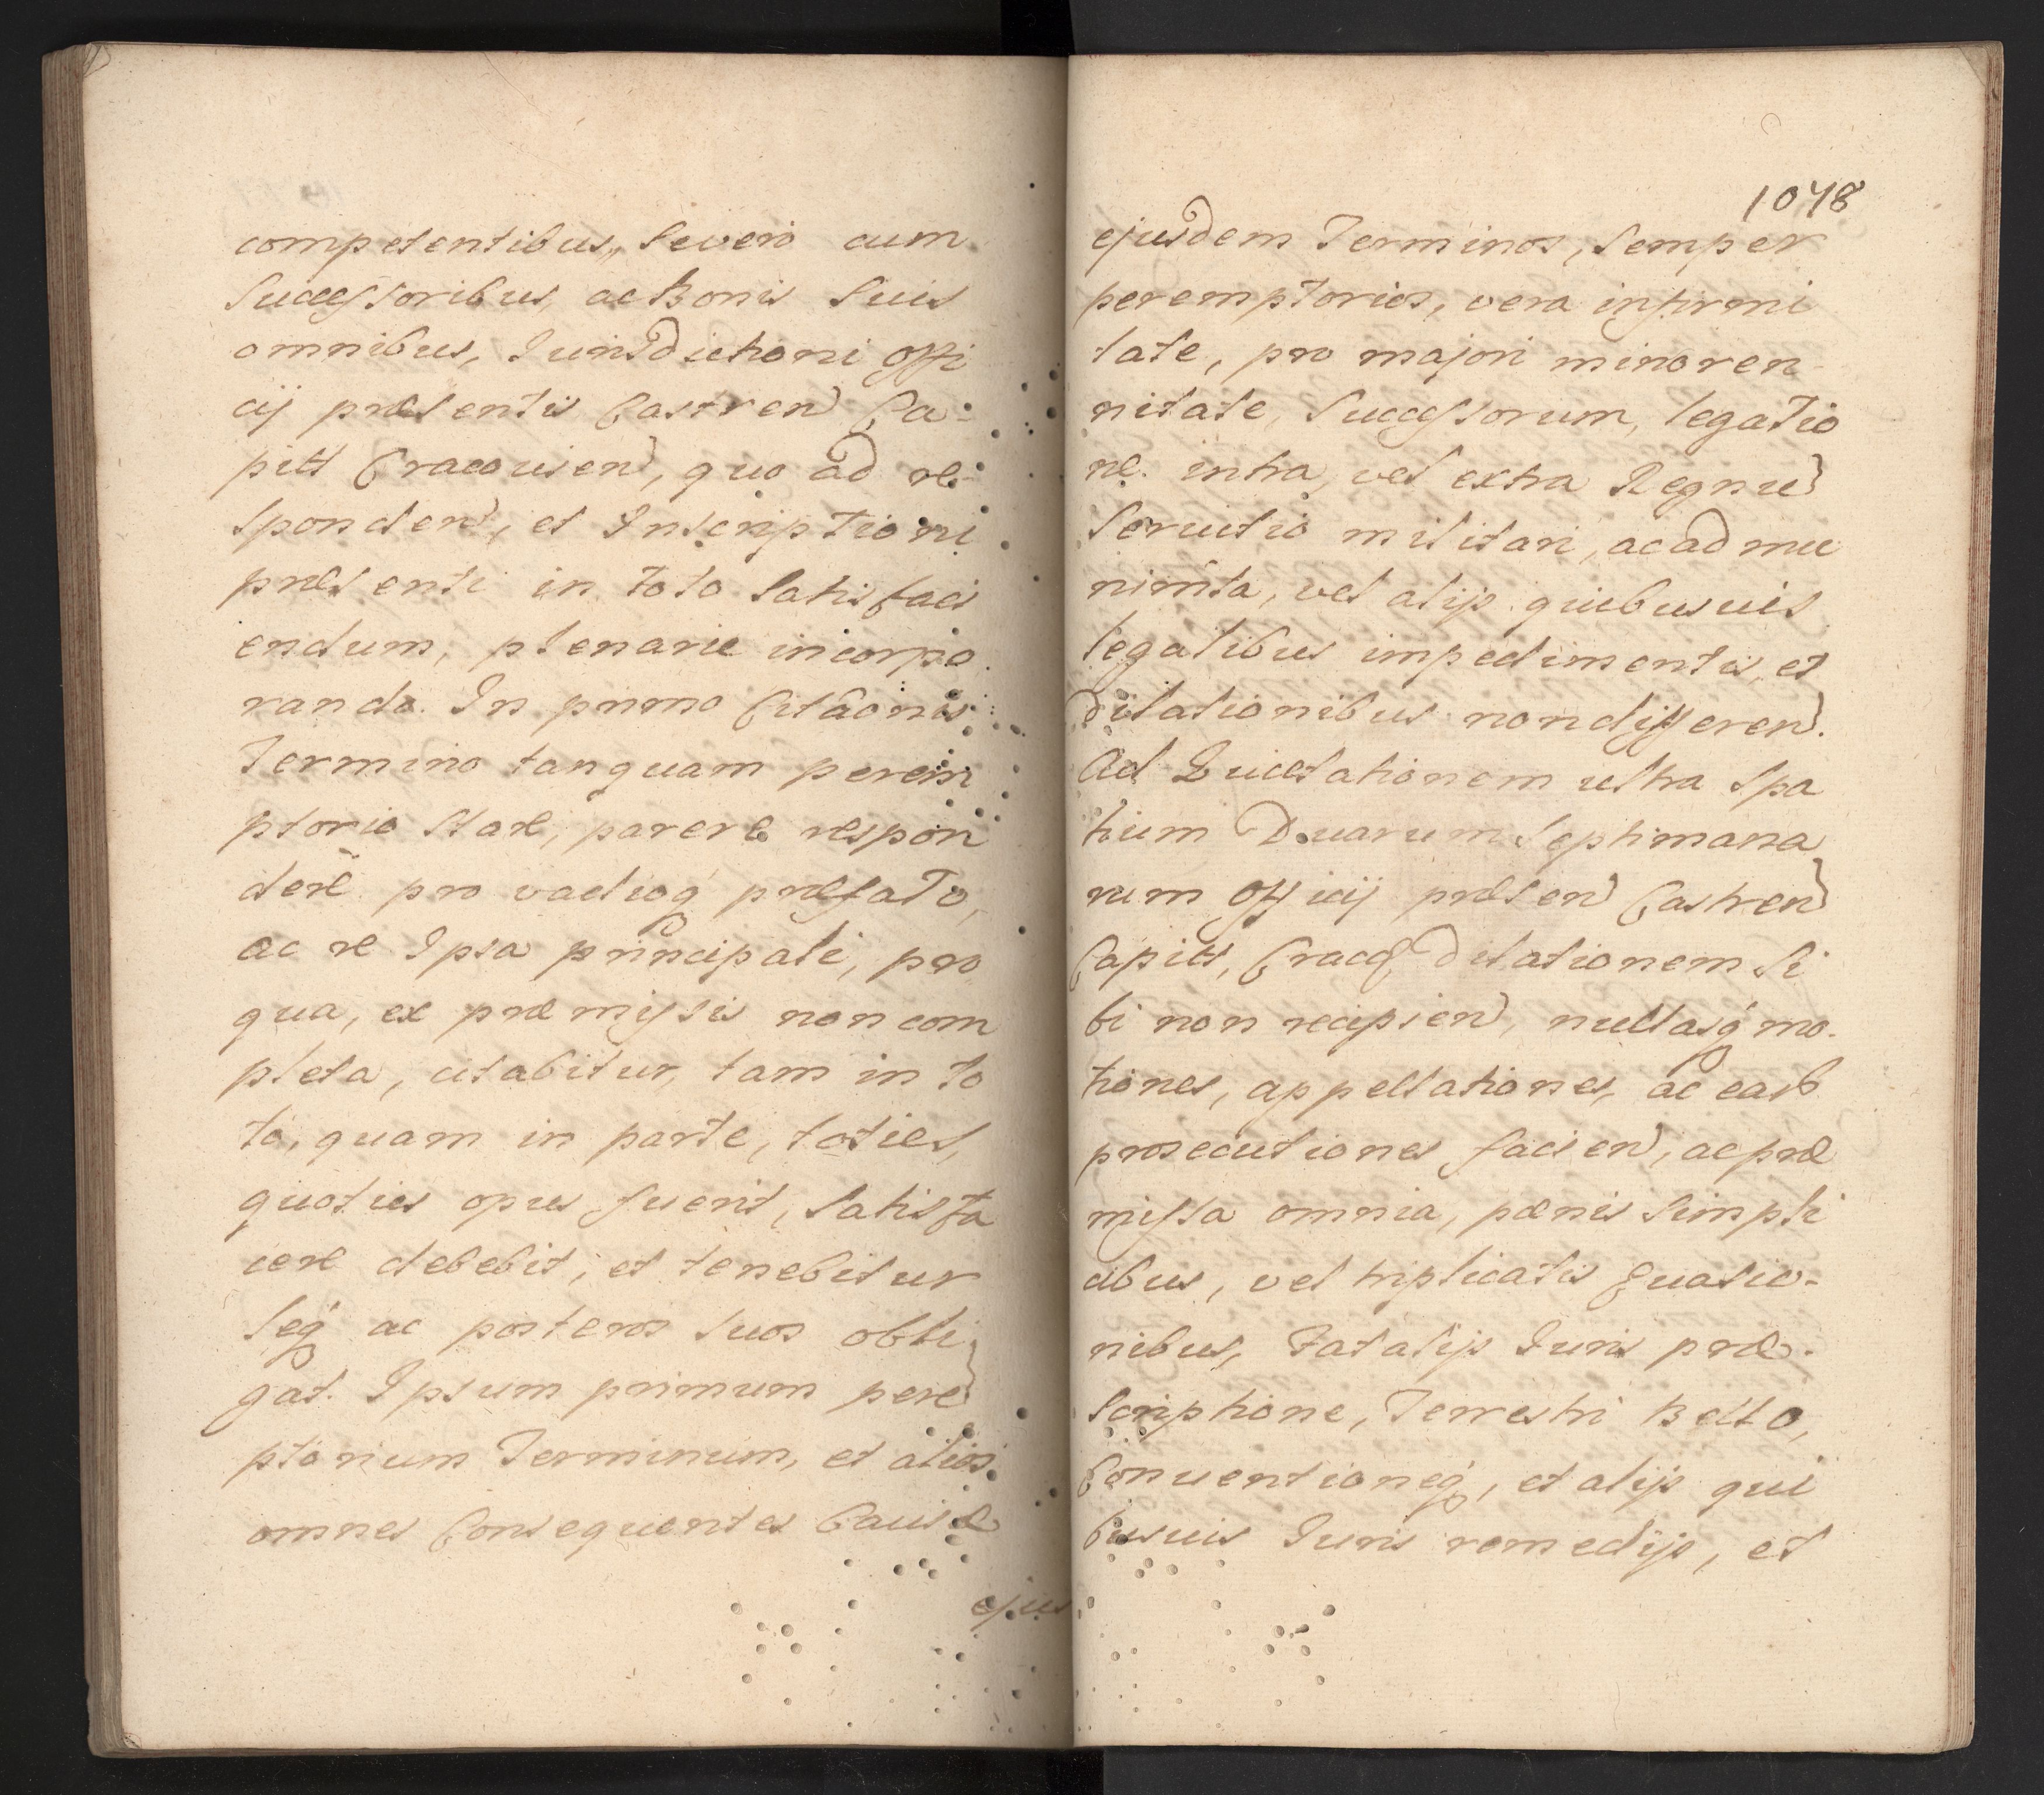 competentibus, Severo cum
Successoribus, ac Bonis Suis
omnibus, Jurisdictioni Offi
cij præsentis Castren Ca-
pitt Cracovien, quo ad re-
sponden, et Inscriptioni
præsenti in toto Satisfaci
endum, plenarie incorpo
rando. In primo Citaõnis
Termino tanquam perem
ptorio Stare, parere respon
dere pro vadioq præfato,
ac re Ipsa principali, pro
qua, ex præmissis non com
pleta, citabitur, tam in to
to, quam in parte, toties,
quoties opus fuerit, Satisfa
cere debebit, et tenebitur
Seq ac posteros Suos obli
gat. Ipsum primum pere
ptorium Terminum, et alios
omnes Consequentes Causæ
ejus
1048
ejusdem Terminos, Semper
peremptorios, vera infirmi
tate, pro majori minoren
nitate, Successorum, legatio
ne. intra, vel extra Regnu
Servitio militari, ac ad mu
nimta, vel alijs quibusvis
legalibus impedimentis, et
Dilationibus non differen.
Ad Quietationem ultra Spa
tium Duarum Septimana
rum Officij præsen Castren
Capitt, Cracq, Dilationem Si
bi non recipien, nullasq mo-
tiones, appellationes, ac earb
prosecutiones facien, ac præ
missa omnia, pænis Simpli
cibus, vel triplicatis Evasio-
nibus, Fatalijs Juris præ-
Scriptione, Terrestri Bello,
Conventioneq, et alijs qui
busvis Juris remedijs, et